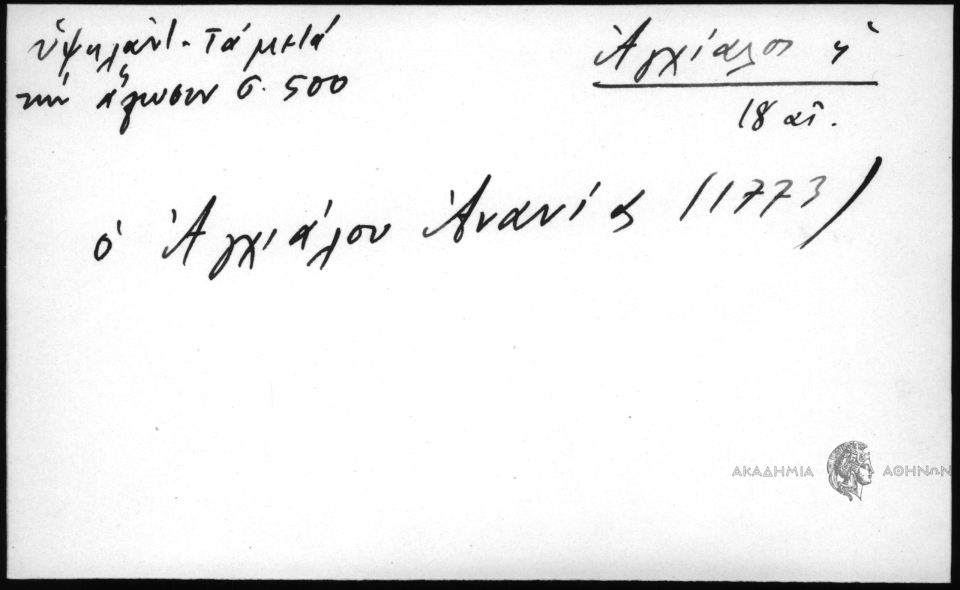 Ὑψηλάντ. Τά μετά
τήν ἅλωσιν σ. 500
Ἀγχίαλος ἡ
18 αἰ.
ὁ Ἀγχιάλου Ἀνανίας (1773)
ΑΚΑΔΗΜΙΑ ΑΘΗΝΩΝ